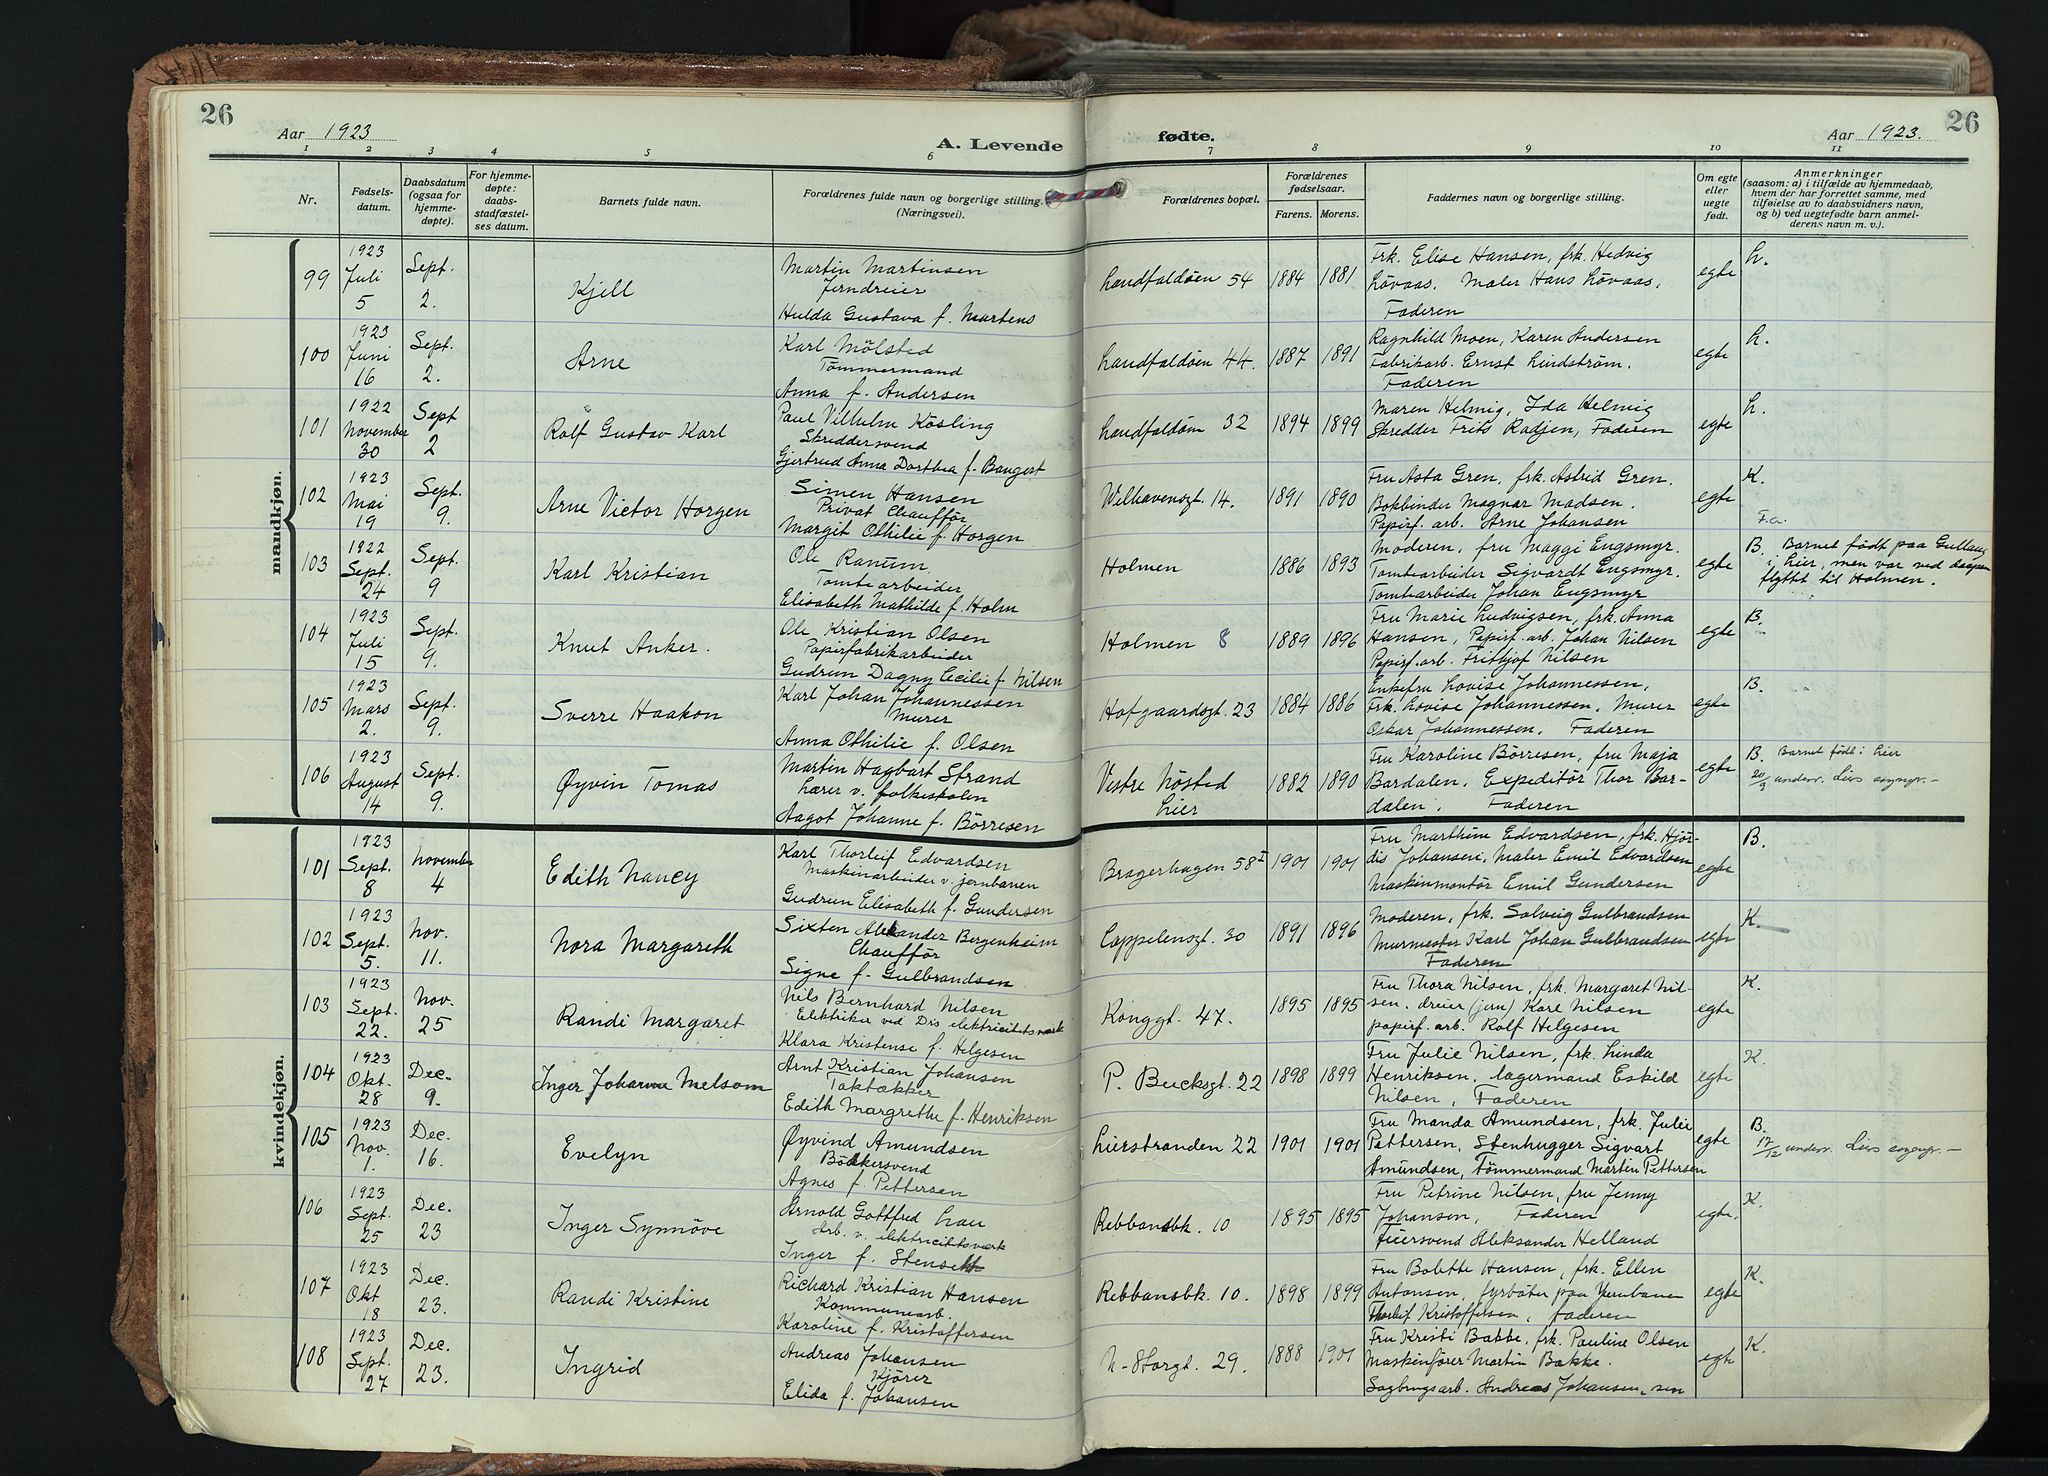 26
Aar 1923
A. Levende
fødte.
Aar 1923.
26
1 2 3 4 5 6 7 8 9 10 11
Nr.
Fødsels-
datum.
Daabsdatum
(ogsaa for
hjemme-
døpte).
For hjemme-
døpte:
daabs-
stadfæstel-
ses datum.
Barnets fulde navn.
Forældrenes fulde navn og borgerlige stilling.
(Næringsvei).
Forældrenes bopæl.
Forældrenes
fødselsaar.
Farens. Morens.
Faddernes navn og borgerlige stilling.
Om egte
eller
uegte
født.
Anmerkninger
(saasom: a) i tilfælde av hjemmedaab,
hvem der har forrettet samme, med
tilføielse av to daabsvidners navn,
og b) ved uegtefødte barn anmel-
derens navn m. v.).
mandkjøn.
99
1923
Juli
5
Sept.
2.
Kjell
Martin Martinsen
Jerndreier
Hulda Gustava f. Martens
Landfaldöen 54
1884 1881
Frk. Elise Hansen, frk. Hedvig
Lövaas. Maler Hans Lövaas,
Faderen
egte
L.
100
1923
Juni
16
Sept.
2.
Arne
Karl Mölsted
Tömmermand
Anna f. Andersen
Landfaldöen 44.
1887 1891
Ragnhild Moen, Karen Andersen
Fabrikarb. Ernst Lindström.
Faderen
egte
L.
101
1922
November
30
Sept
2
Rolf Gustav Karl
Paul Vilhelm Kösling
Skreddersvend
Gjertrud Anna Dorthea f. Bangest
Landfaldöen 32
1894 1899
Maren Helmig, Ida Helmig
Skredder Frits Radjen, Faderen
egte
L.
102
1923
Mai
19
Sept.
9.
Arne Victor Horgen
Simen Hansen
Privat Chaufför
Margit Othilie f. Horgen
Welhavensgt. 14.
1891 1890
Fru Asta Gren, frk. Astrid Gren.
Bokbinder Magnar Madsen.
Papirf. arb. Arne Johansen
egte
K.
F.a.
103
1922
Sept.
24
Sept.
9
Karl Kristian
Ole Ranum.
Tomtearbeider
Elisabeth Mathilde f. Holm
Holmen
1886 1893
Moderen, fru Maggi Engsmyr.
Tomtearbeider Sigvardt Engsmyr.
Tomtearbeider Johan Engsmyr
egte
B. Barnet födt paa Gullaug
i Lier, men var ved daapen
flyttet til Holmen.
104
1923
Juli
15
Sept.
9.
Knut Anker.
Ole Kristian Olsen
Papirfabrikarbeider
Gudrun Dagny Cecilie f. Nilsen
Holmen 8
1889 1896
Fru Marie Ludvigsen, frk. Anna
Hansen, Papirf. arb. Johan Nilsen
Papirf. arb. Fritjof Nilsen
egte
B.
105
1923
Mars
2.
Sept.
9.
Sverre Haakon
Karl Johan Johannessen
Murer
Anna Othilie f. Olsen
Hofgaardsgt. 23
1884 1886
Enkefru Lovise Johannessen,
frk. Lovise Johannessen, Murer
Oskar Johannessen, Faderen
egte
B.
106
1923
August
14
Sept.
9.
Øyvin Tomas
Martin Hagbart Strand
Lærer v. folkeskolen
Aagot Johanne f. Börresen
Vestre Nösted
Lier
1882 1890
Fru Karoline Börresen, fru Maja
Bardalen, Expeditör Thor Bar-
dalen, Faderen
egte
B. Barnet födt i Lier
20/9 underr. Liers sognepr. -
kvindekjøn.
101
1923
Sept.
8
November
4
Edith Nancy
Karl Thorleif Edvardsen
Maskinarbeider v. jernbanen
Gudrun Elisabeth f. Gundersen
Bragerhagen 58 I
1901 1901
Fru Marthine Edvardsen, frk. Hjör-
dis Johansen, Maler Emil Edvardsen
Maskinmontör Emil Gundersen
egte
B.
102
1923
Sept.
5.
Nov.
11.
Nora Margareth
Sixten Aleksander Bergenheim
Chaufför
Signe f. Gulbrandsen
Cappelensgt. 30
1891 1896
Moderen, frk. Solveig Gulbrandsen
Murmester Karl Johan Gulbrandsen
Faderen
egte
K.
103
1923
Sept.
22.
Nov.
25
Randi Margaret
Nils Bernhard Nilsen
Elektriker ved Drs elektricitetsværk
Klara Kristense f. Helgesen
Konggt. 47.
1895 1895
Fru Thora Nilsen, frk. Margaret Nil-
sen. dreier (jern) Karl Nilsen
papirf. arb. Rolf Helgesen
egte
K.
104
1923
Okt.
28
Dec.
9.
Inger Johanne Melsom
Arnt Kristian Johansen
Taktækker
Edith Margrethe f. Henriksen
P. Bucksgt. 22
1898 1899
Fru Julie Nilsen, frk. Linda
Henriksen, Lagermand Eskild
Nilsen, Faderen
egte
K.
105
1923
Nov.
1.
Dec.
16.
Evelyn
Øyvind Amundsen
Bökkersvend
Agnes f. Pettersen
Lierstranden 22
1901 1901
Fru Manda Amundsen, frk. Julie
Pettersen, Stenhugger Sigvart
Amundsen, Tömmermand Martin Pettersen
egte
B.
17/12 underr. Liers sognepr. -
106
1923
Sept.
25
Dec.
23
Inger Synnöve
Arnold Gottfred Lau
Arb. v. elektricitetsværk
Inger f. Stenseth
Rebbansbk. 10
1895 1895
Fru Petrine Nilsen, fru Jenny
Johansen, Faderen
Feiersvend Aleksander Helland
egte.
K.
107
1923
Okt
18
Dec.
23.
Randi Kristine
Richard Kristian Hansen
Kommunearb.
Karoline f. Kristoffersen
Rebbansbk. 10.
1898 1899
Fru Bolette Hansen, frk. Ellen
Antonsen, fyrböter paa Jernbanen
Thorleif Kristoffersen, faderen
egte
K.
108
1923
Sept.
27
Dec.
23.
Ingrid
Andreas Johansen
Kjörer
Elida f. Johansen
N-Storgt. 29.
1888 1901
Fru Kristi Bakke, frk. Pauline Olsen
Maskinförer Martin Bakke.
Sagbrugsarb. Andreas Johansen, sen
egte
K.